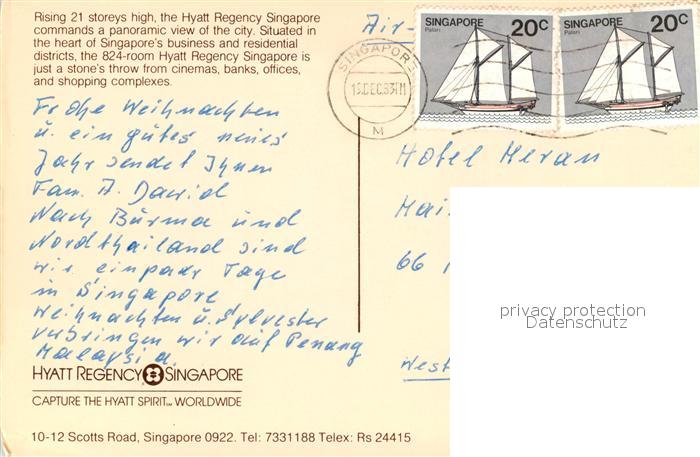 Rising 21 storeys high, the Hyatt Regency Singapore
commands a panoramic view of the city. Situated in
the heart of Singapore's business and residential
districts, the 824-room Hyatt Regency Singapore is
just a stone's throw from cinemas, banks, offices,
and shopping complexes.
Frohe Weihnachten
u. ein gutes neues
Jahr sendet Ihnen
Fam. A. David
Nach Burma und
Nordthailand sind
wir ein paar Tage
in Singapore
Weihnachten u. Sylvester
verbringen wir auf Penang
Malaysia.
HYATT REGENCY SINGAPORE
CAPTURE THE HYATT SPIRIT™ WORLDWIDE
10-12 Scotts Road, Singapore 0922. Tel: 7331188 Telex: Rs 24415
Air-
SINGAPORE
15 DEC 83
M
SINGAPORE 20c
Palari
SINGAPORE 20c
Palari
Hotel Meran
Mai
66
West
privacy protection
Datenschutz